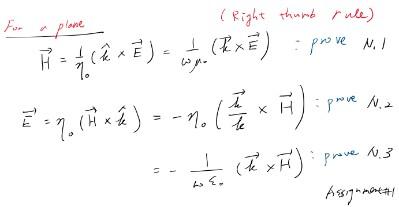 For a plane
(Right thumb rule)
H⃗ = 1/η₀ (k̂ × E⃗) = 1/ωμ₀ (k⃗ × E⃗) : prove N.1
E⃗ = η₀ (H⃗ × k̂) = -η₀ (k⃗/k × H⃗) : prove N.2
= - 1/ωε₀ (k⃗ × H⃗) : prove N.3
Assignment#1